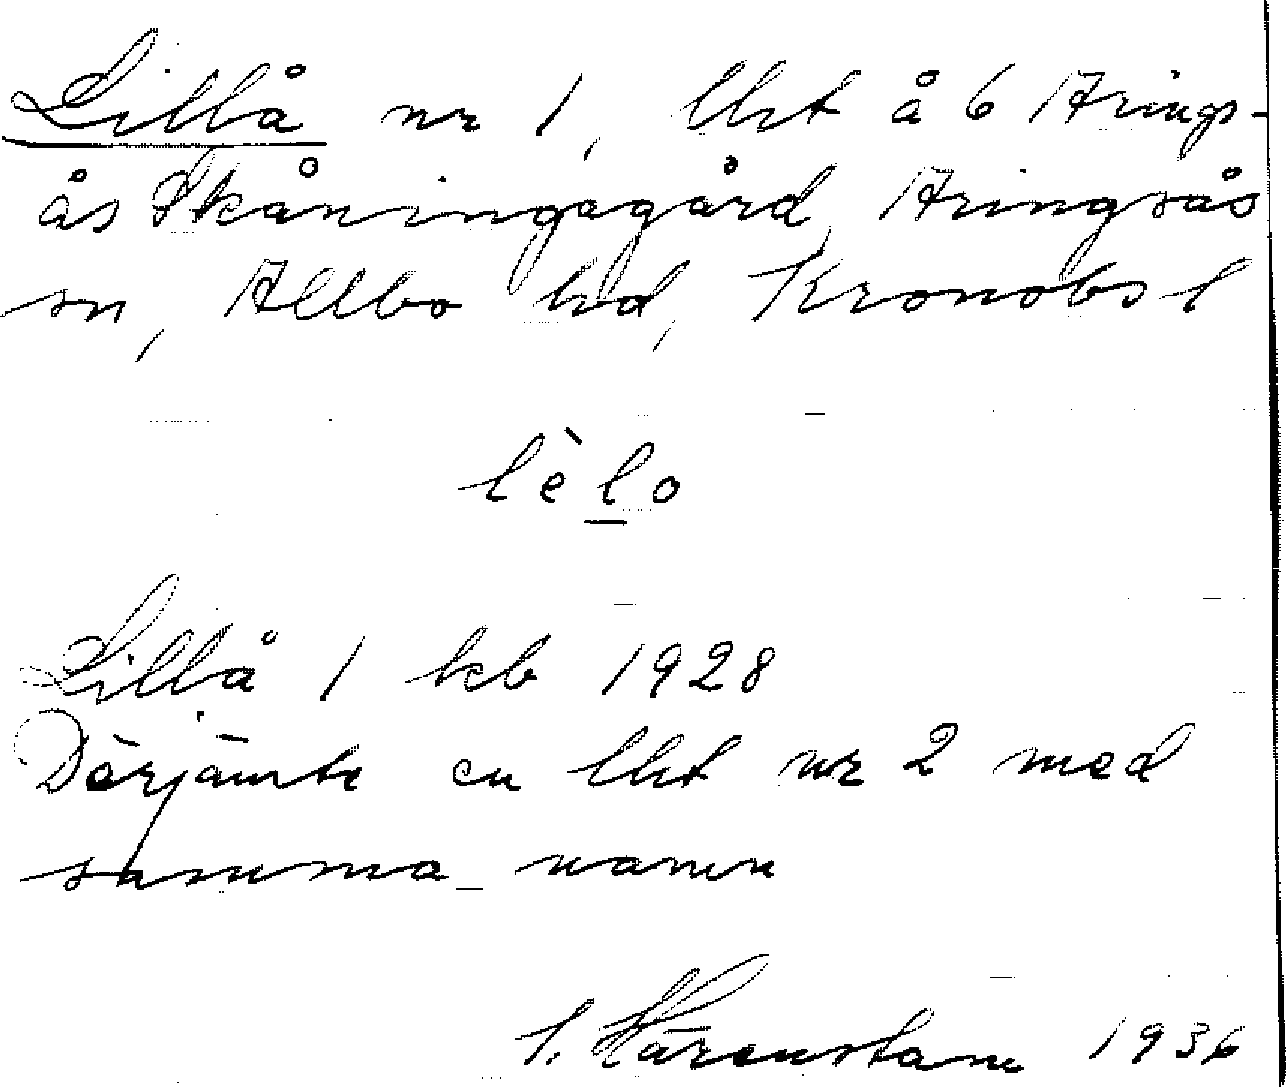 Lillå nr 1, lht å 6 Arings-
ås Skåningagård, Aringsås
sn, Allbo hd, Kronobs l
lèlo
Lillå 1 kb 1928
Därjämte en lht nr 2 med
samma namn
S. Härenstam 1936